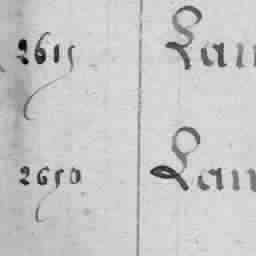 2615 Lan
2650 Lan